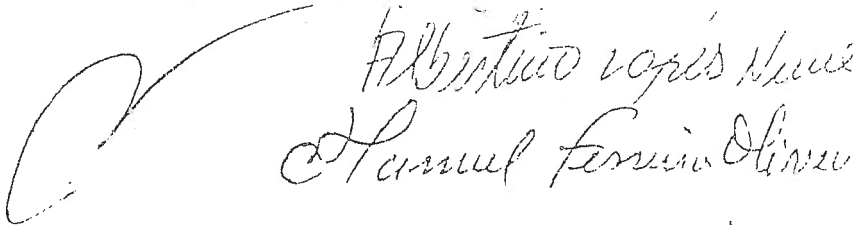 Albertino Lopes Nune
Manuel Ferreira Olivei